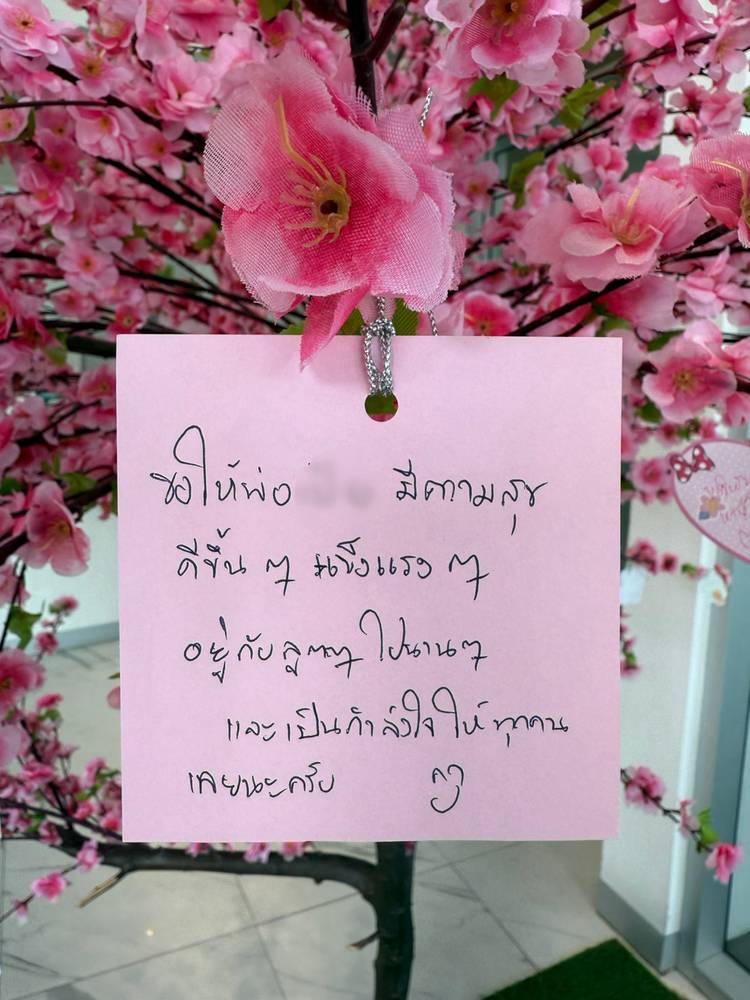 ขอให้พ่อ มีความสุข
ดีขึ้น ๆ แข็งแรง ๆ
อยู่กับลูกๆๆ ไปนานๆ
และเป็นกำลังใจให้ทุกคน
เลยนะครับ